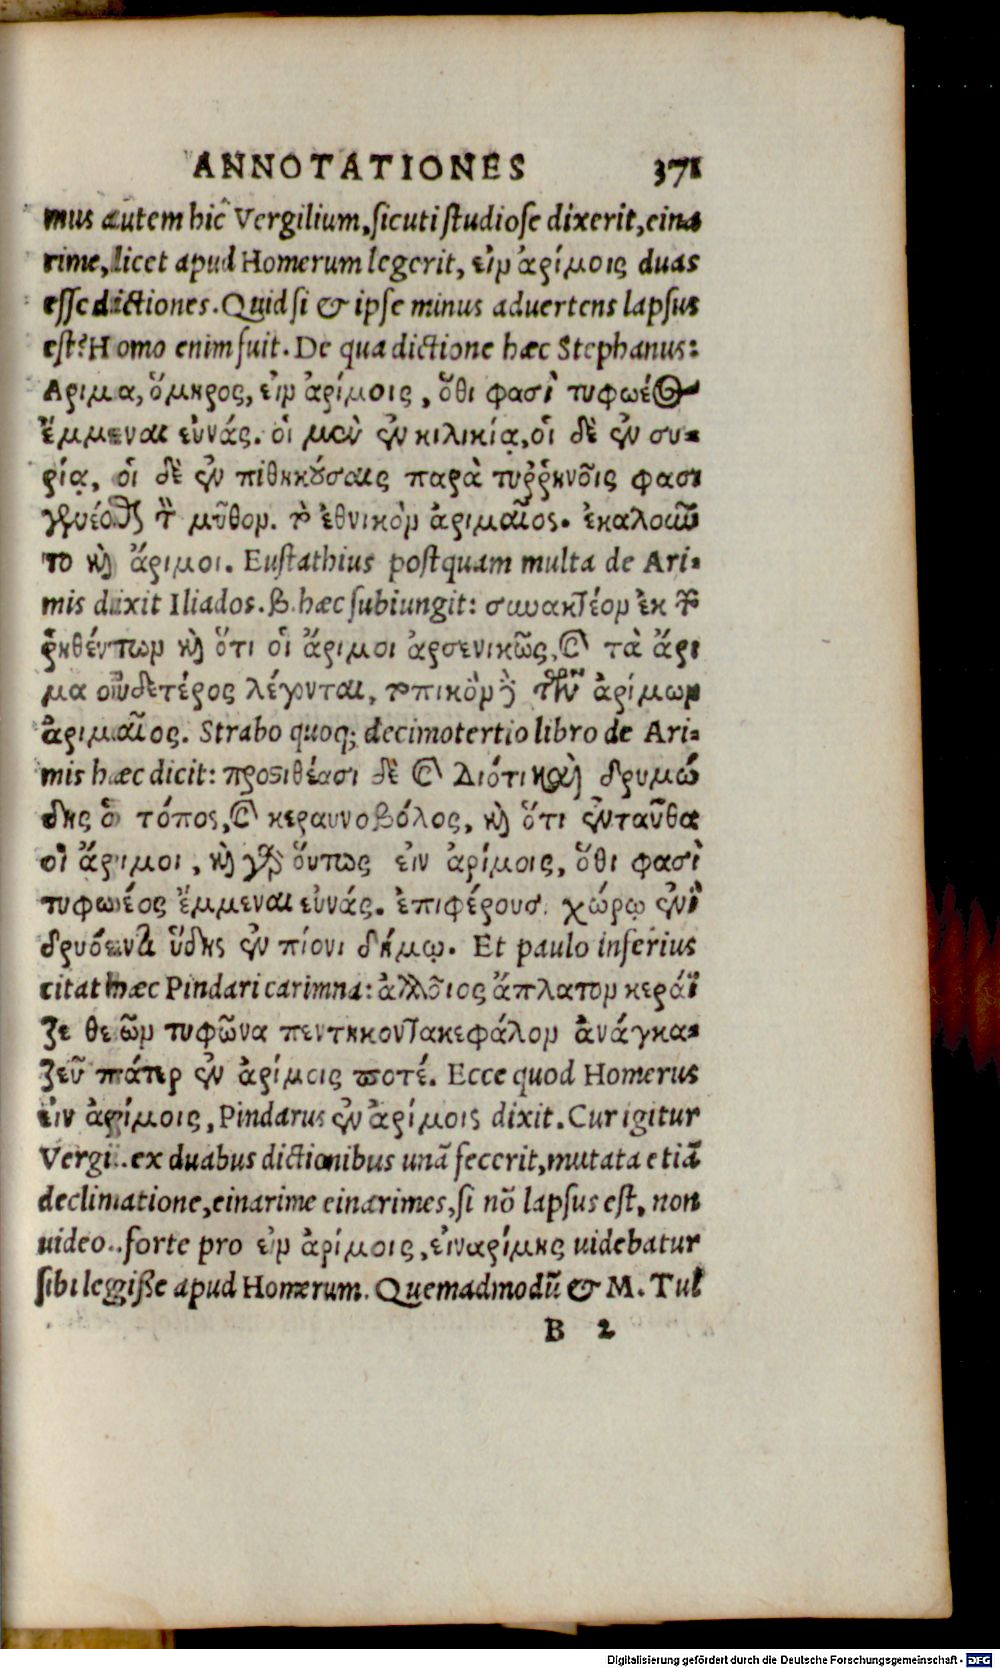 ANNOTATIONES 371
mus autem hic Vergilium, sicuti studiose dixerit, eina
rime, licet apud Homerum legerit, εἰν ἀρίμοις duas
esse dictiones. Quid si & ipse minus aduertens lapsus
est? Homo enim fuit. De qua dictione hæc Stephanus:
Αριμα, ὅμηρος, εἰν ἀρίμοις, ὅθι φασὶ τυφωέος
ἔμμεναι εὐνάς. οἱ μὲν ἐν κιλικίᾳ, οἱ δὲ ἐν συ-
ρίᾳ, οἱ δὲ ἐν πιθηκούσαις παρὰ τυῤῥηνοῖς φασι
γενέσθαι τὸν μῦθον. τὸ ἐθνικὸν ἀριμαῖος. ἐκαλοῦν
το καὶ ἄριμοι. Eustathius postquam multa de Ari-
mis dixit Iliados. β. hæc subiungit: συνακτέον ἐκ τῶν
ῥηθέντων καὶ ὅτι οἱ ἄριμοι ἀρσενικῶς, καὶ τὰ ἄρι
μα οὐδετέρος λέγονται, τοπικὸν δὲ τῶν ἀρίμων
ἀριμαῖος. Strabo quoq; decimotertio libro de Ari-
mis hæc dicit: προστιθέασι δὲ καὶ διότι καὶ δρυμώ
δης ὁ τόπος, καὶ κεραυνοβόλος, καὶ ὅτι ἐνταῦθα
οἱ ἄριμοι, καὶ γὰρ οὕτως εἰν ἀρίμοις, ὅθι φασὶ
τυφωέος ἔμμεναι εὐνάς. ἐπιφέρουσ. χώρῳ ἐνὶ
δρυόεντι ὕδης ἐν πίονι δήμῳ. Et paulo inferius
citat hæc Pindari carimna: ἀλλοῖος ἄπλατον κεράϊ
ζε θεῶν τυφῶνα πεντηκοντακεφάλον ἀνάγκα-
ζεῦ πάτερ ἐν ἀρίμοις ποτέ. Ecce quod Homerus
εἰν ἀρίμοις, Pindarus ἐν ἀρίμοις dixit. Cur igitur
Vergi.. ex duabus dictionibus unã fecerit, mutata etiã
declinatione, einarime einarimes, si nõ lapsus est, non
uideo.. forte pro εἰν ἀρίμοις, εἰναρίμης uidebatur
sibi legisse apud Homerum. Quemadmodũ & M. Tul
B 2
Digitalisierung gefördert durch die Deutsche Forschungsgemeinschaft - DFG